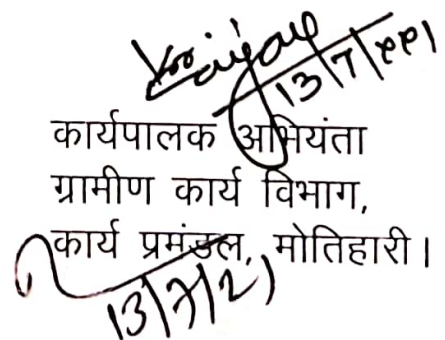 13/7/2021
कार्यपालक अभियंता
ग्रामीण कार्य विभाग,
कार्य प्रमंडल, मोतिहारी।
13/7/21